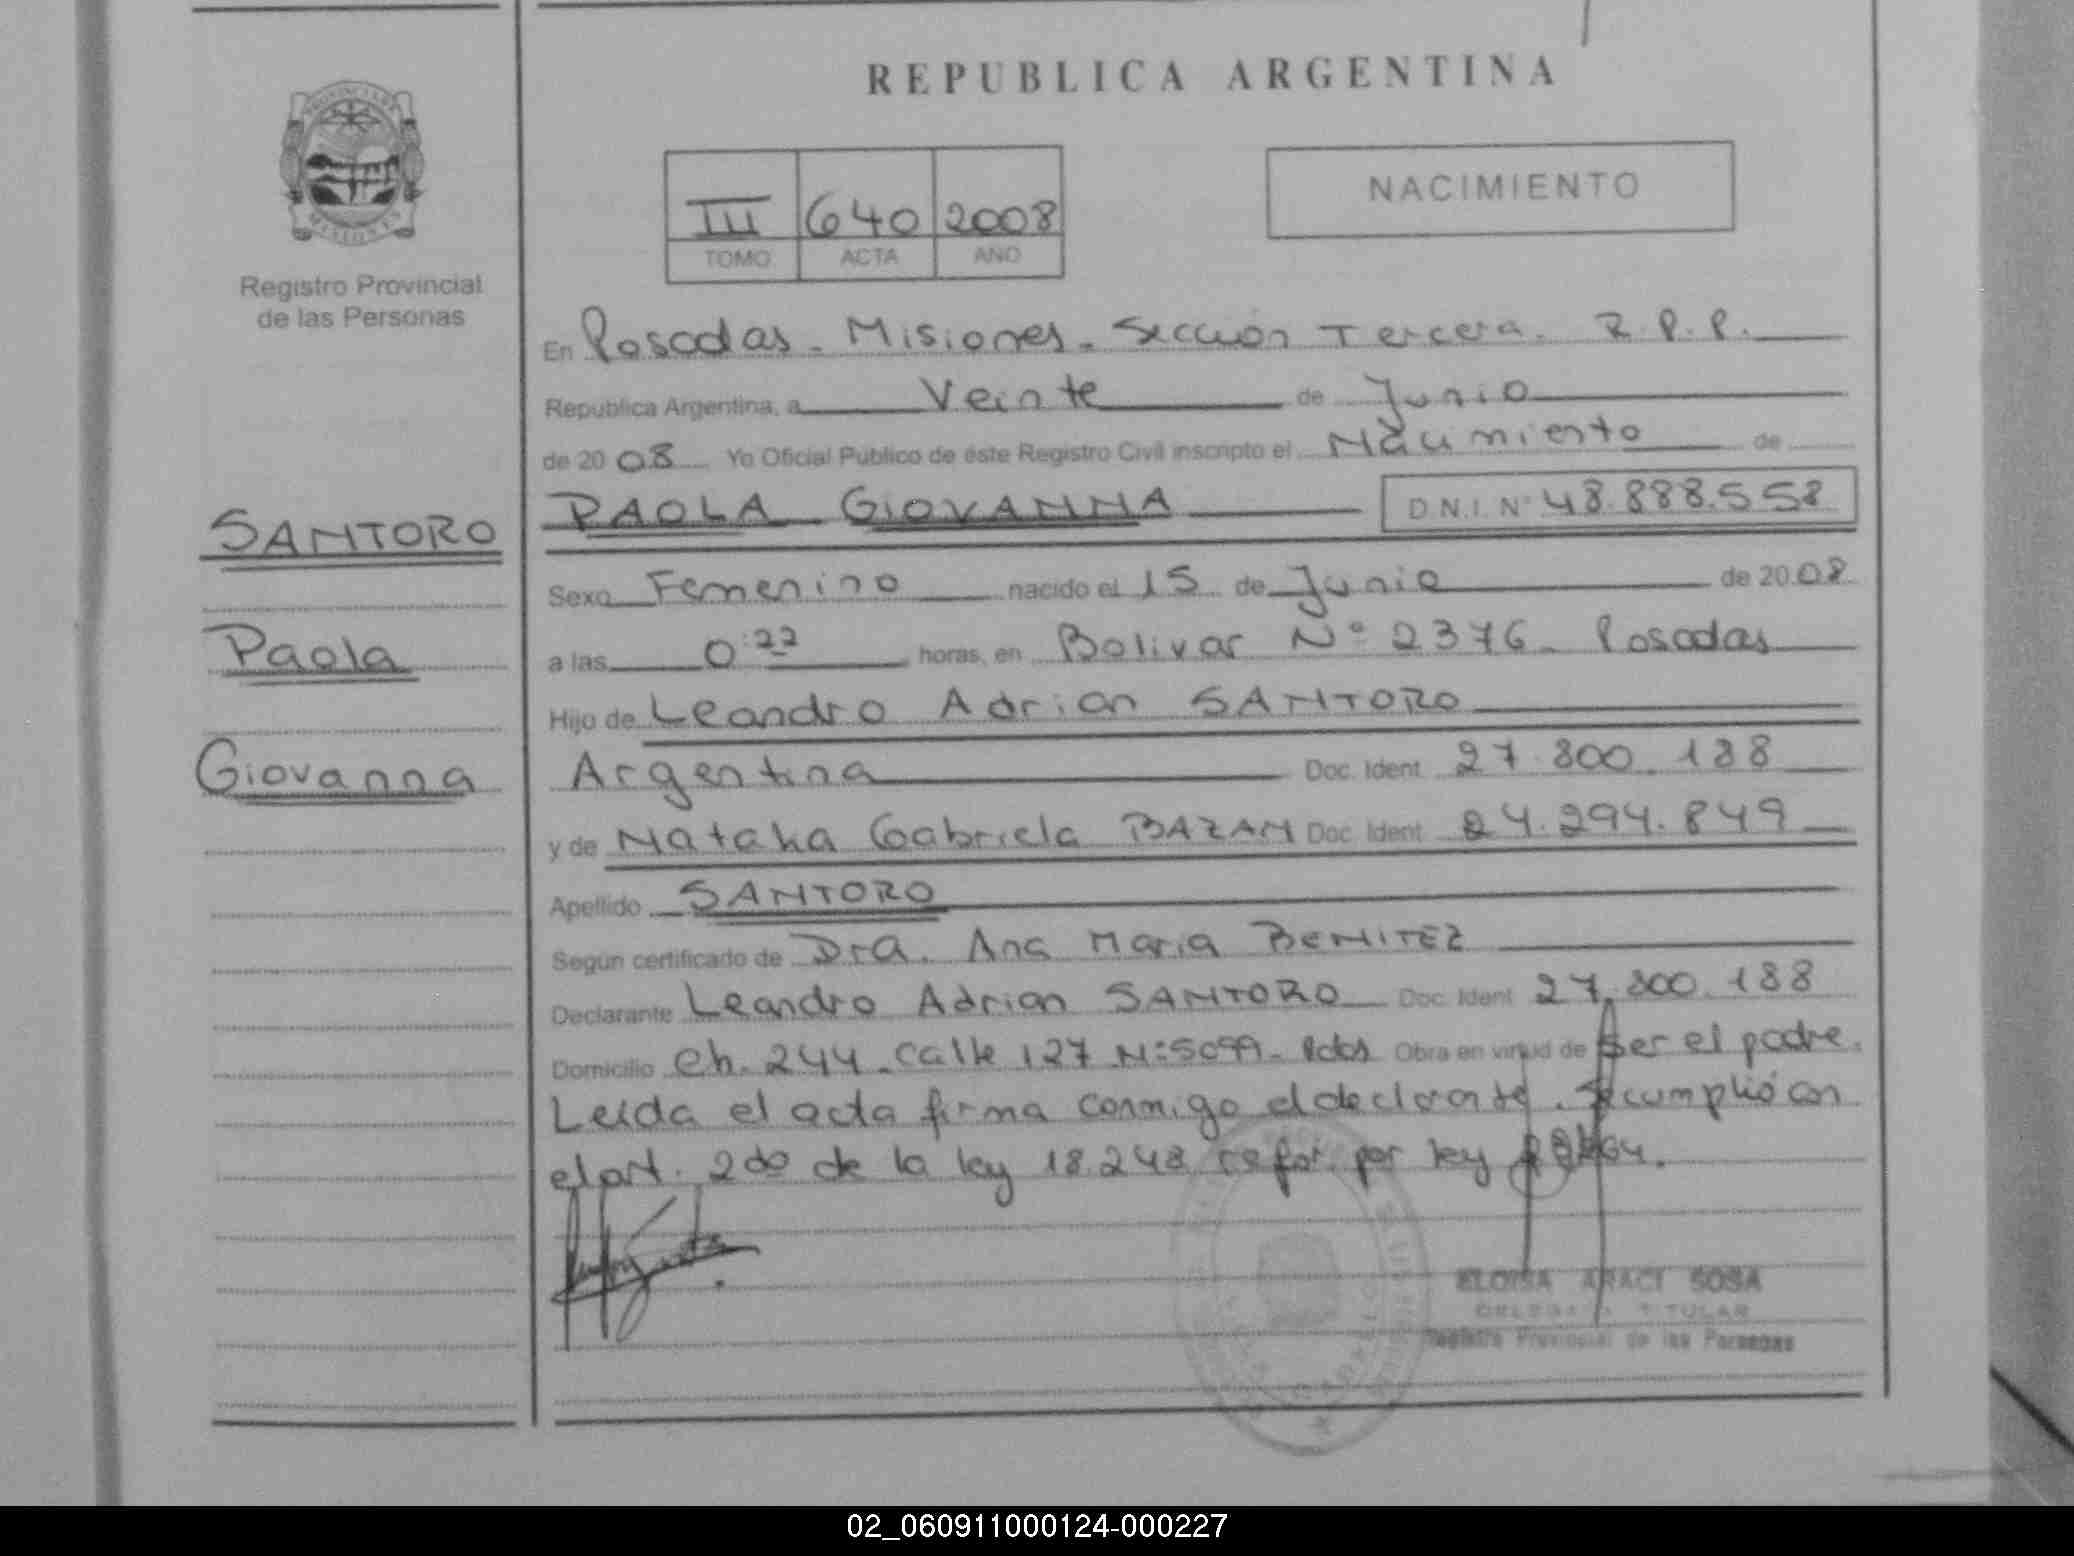 REPUBLICA ARGENTINA
NACIMIENTO
III 640 2008
TOMO ACTA AÑO
PROVINCIA DE
MISIONES
Registro Provincial
de las Personas
SANTORO
Paola
Giovanna
En Posadas - Misiones - Sección Tercera. R.P.P.
Republica Argentina, a Veinte de Junio
de 2008 Yo Oficial Público de éste Registro Civil inscripto el Nacimiento de
PAOLA GIOVANNA D.N.I. Nº 48.888.558
Sexo Femenino nacido el 15 de Junio de 2008
a las 0:22 horas, en Bolivar Nº 2376 - Posadas
Hijo de Leandro Adrian SANTORO
Argentina Doc. Ident 27.800.188
y de Natalia Gabriela BAZAN Doc. Ident 24.294.849
Apellido SANTORO
Según certificado de Dra. Ana Maria BENITEZ
Declarante Leandro Adrian SANTORO Doc. Ident 27.800.188
Domicilio Ch. 244 - Calle 127 Nº 5099 - Pdas Obra en virtud de Ser el padre.
Leida el acta firma conmigo el declarante. Se cumplió con
el art. 2do de la ley 18.248 refor. por ley
ELOISA ARACI SOSA
DELEGADA TITULAR
Registro Provincial de las Personas
02_060911000124-000227